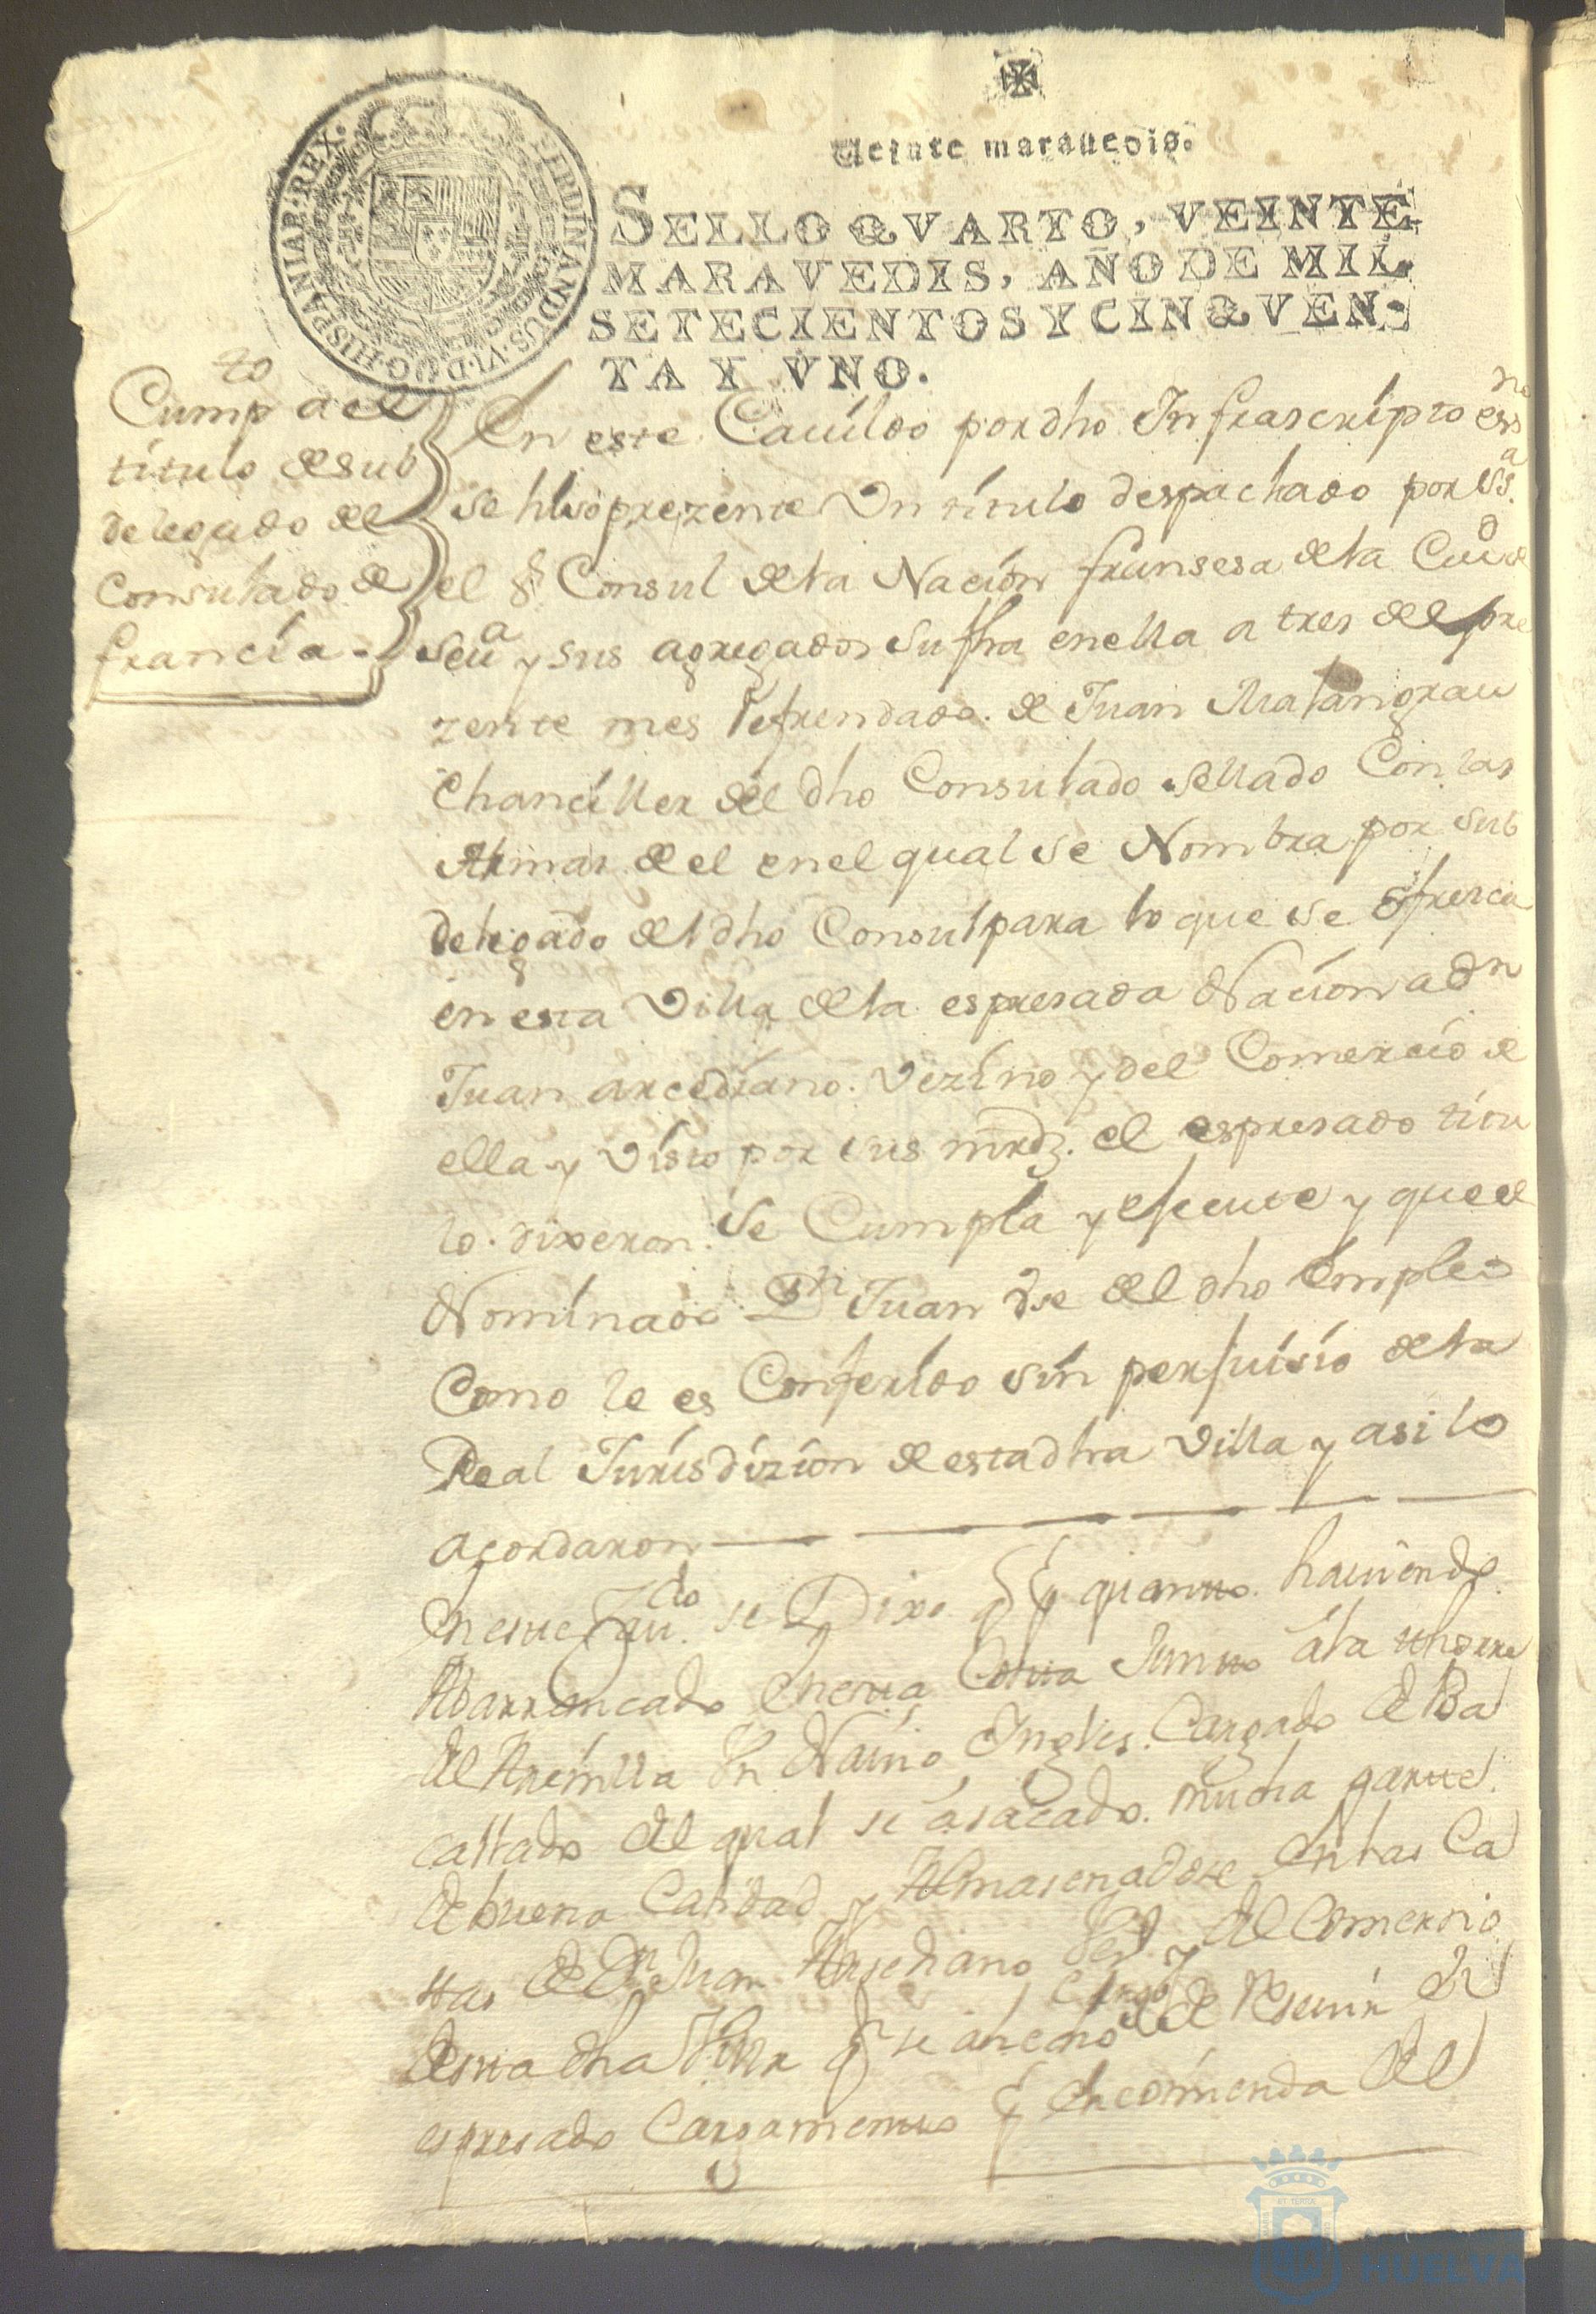 Veinte maravedis.
SELLO QVARTO, VEINTE
MARAVEDIS, AÑO DE MIL
SETECIENTOS Y CINQVEN-
TA Y VNO.
FERDINANDUS·VI·D·G·HISPANIAR·REX·
Cump.to a el
titulo de sub
delegado de el
Consulado de
francia-
En este Cavildo por dho Infrascripto essno
se hiso prezente Vn titulo despachado por
el Sr Consul de la Nacion fransesa de la Ciud de
Seva y sus agregados su fha en ella a tres del pre
zente mes Refrendado. de Juan Malangrau
Chanciller del dho Consulado sellado Con las
Armas de el en el qual se Nombra por sub
delegado del dho Consul para lo que se ofresca
en esta Villa de la espresada Nacion a Dn
Juan arcediano. Vezino y del Comercio de
ella y Visto por sus mrdz. el espresado titu
lo. dixeron. se Cumpla y efecute y que el
Nominado Dn Juan Vse del dho Empleo
Como le es Conferido sin perjuisio de la
Real Jurisdizion de esta dha Villa y asi lo
acordaron
En este Cavdo se Dixo q. pr quanto. haviendo
Abarrancado En esta Costa Junto á la
del Aremilla Vn Navio Ingles. Cargado de Ba
callado del qual se á sacado. mucha parte
de buena Calidad y Almasenadose En las Ca
sas de Dn Juan Arsediano Vesº y del Comersio
de esta dha Villa q. se a hecho Cargo de Resevir el
espresado Cargamento pr Encomienda del
HUELVA